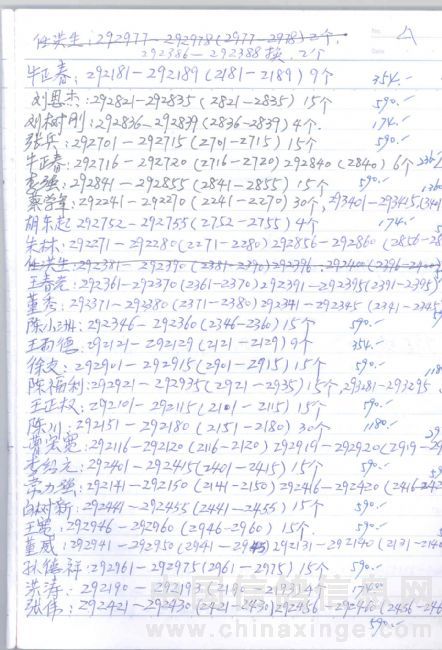 任洪生:292977-292978(2977-2978)2个.
292386-292388换.2个
牛正春:292181-292189(2181-2189)9个 354.-
刘思杰:292821-292835(2821-2835)15个 590.-
刘树刚:292836-292839(2836-2839)4个. 174.-
张兵:292701-292715(2701-2715)15个 590.-
牛正春:292716-292720(2716-2720)292840(2840)6个 236.-
强:292841-292855(2841-2855)15个 590.-
292241-292270(2241-2270)30个,293401-293415(3401
胡东起292752-292755(2752-2755)4个 174.-
朱林:292271-292280(2271-2280)292856-292860(2856-28
任洪生:292381-292390(2381-2390)292396-292400(2396-2400)
王春 292361-292370(2361-2370)292391-292395(2391-2395)
董秀:292371-292380(2371-2380)292341-292345(2341-2345
陈小洲:292346-292360(2346-2360)15个 590.-
王 德.292121-292129(2121-2129)9个 354.-
徐 :292901-292915(2901-2915)15个 590.-
陈福利:292921-292935(2921-2935)15个,293281-293295
王正权:292101-292115(2101-2115)15个 590.-
陈川:292151-292180(2151-2180)30个 1180.-
曹宏宽:292116-292120(2116-2120)292919-292920(2919-29
李 元:292401-292415(2401-2415)15个 590.-
力强:292141-292150(2141-2150)292416-292420(2416-242
白树新:292441-292455(2441-2455)15个 590.-
王 :292946-292960(2946-2960)15个. 590.-
董威:292941-292950(2941-2945)292131-292140(2131-2140
孙德祥:292961-292975(2961-2975)15个 590.-
洪涛:292190-292193(2190-2193)4个 174.-
张伟:292421-292430(2421-2430)292456-292460(2456-246
590.-
www.chinaxinge.com